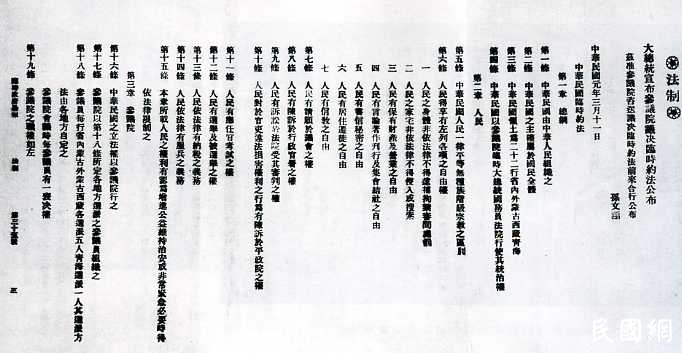 法制
大總統宣布參議院議決臨時約法公布
茲准參議院咨送議決臨時約法前來合行公布
孫文
中華民國元年三月十一日
中華民國臨時約法
第一章 總綱
第一條 中華民國由中華人民組織之
第二條 中華民國之主權屬於國民全體
第三條 中華民國領土爲二十二行省內外蒙古西藏青海
第四條 中華民國以參議院臨時大總統國務員法院行使其統治權
第二章 人民
第五條 中華民國人民一律平等無種族階級宗教之區別
第六條 人民得享有左列各項之自由權
一 人民之身體非依法律不得逮捕拘禁審問處罰
二 人民之家宅非依法律不得侵入或搜索
三 人民有保有財產及營業之自由
四 人民有言論著作刊行及集會結社之自由
五 人民有書信秘密之自由
六 人民有居住遷徙之自由
七 人民有信教之自由
第七條 人民有請願於議會之權
第八條 人民有陳訴於行政官署之權
第九條 人民有訴訟於法院受其審判之權
第十條 人民對於官吏違法損害權利之行爲有陳訴於平政院之權
第十一條 人民有應任官考試之權
第十二條 人民有選舉及被選舉之權
第十三條 人民依法律有納稅之義務
第十四條 人民依法律有服兵之義務
第十五條 本章所載人民之權利有認爲增進公益維持治安或非常緊急必要時得
依法律限制之
第三章 參議院
第十六條 中華民國之立法權以參議院行之
第十七條 參議院以第十八條所定各地方選派之參議員組織之
第十八條 參議員每行省內蒙古外蒙古西藏各選派五人青海選派一人其選派方
法由各地方自定之
參議院會議時每參議員有一表決權
第十九條 參議院之職權如左
臨時政府公報 法制 第三十五號 三
民國網